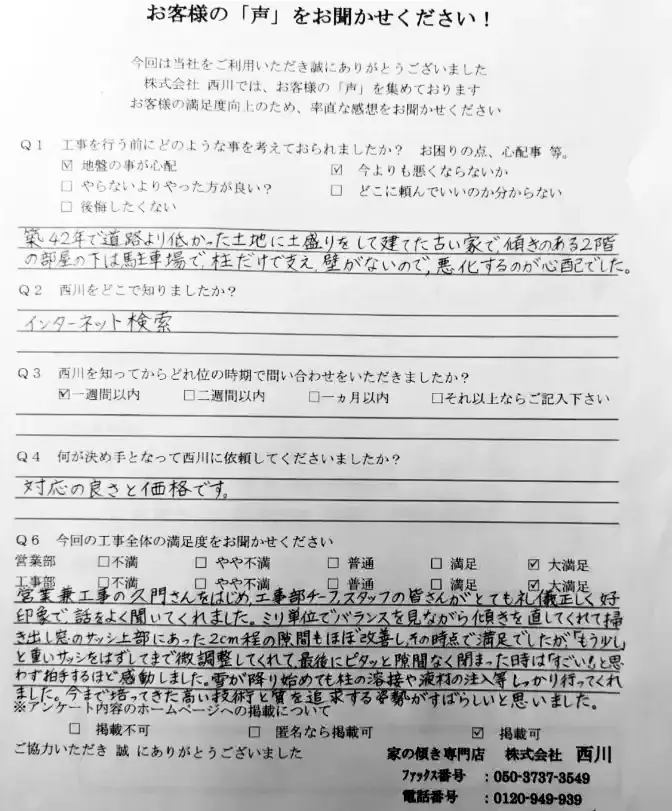 お客様の「声」をお聞かせください！
今回は当社をご利用いただき誠にありがとうございました
株式会社 西川では、お客様の「声」を集めております
お客様の満足度向上のため、率直な感想をお聞かせください
Q1 工事を行う前にどのような事を考えておられましたか？ お困りの点、心配事 等。
☑ 地盤の事が心配 ☑ 今よりも悪くならないか
□ やらないよりやった方が良い？ □ どこに頼んでいいのか分からない
□ 後悔したくない
築42年で道路より低かった土地に土盛りをして建てた古い家で、傾きのある2階
の部屋の下は駐車場で、柱だけで支え、壁がないので、悪化するのが心配でした。
Q2 西川をどこで知りましたか？
インターネット検索
Q3 西川を知ってからどれ位の時期で問い合わせをいただきましたか？
☑一週間以内 □二週間以内 □一ヵ月以内 □それ以上ならご記入下さい
Q4 何が決め手となって西川に依頼してくださいましたか？
対応の良さと価格です。
Q6 今回の工事全体の満足度をお聞かせください
営業部 □不満 □ やや不満 □ 普通 □ 満足 ☑ 大満足
工事部 □不満 □ やや不満 □ 普通 □ 満足 ☑ 大満足
営業兼工事の久門さんをはじめ、工事部チーフ、スタッフの皆さんがとても礼儀正しく好
印象で、話をよく聞いてくれました。ミリ単位でバランスを見ながら傾きを直してくれて掃
き出し窓のサッシ上部にあった2cm程の隙間もほぼ改善し、その時点で満足でしたが、「もう少し」
と重いサッシをはずしてまで微調整してくれて、最後にピタッと隙間なく閉まった時は「すごい！」と思
わず拍手するほど感動しました。雪が降り始めても柱の溶接や液材の注入等しっかり行ってくれ
ました。今まで培ってきた高い技術と質を追求する姿勢がすばらしいと思いました。
※アンケート内容のホームページへの掲載について
□ 掲載不可 □ 匿名なら掲載可 ☑ 掲載可
ご協力いただき 誠 にありがとうございました
家の傾き専門店 株式会社 西川
ﾌｧｯｸｽ番号 ：050-3737-3549
電話番号 ：0120-949-939